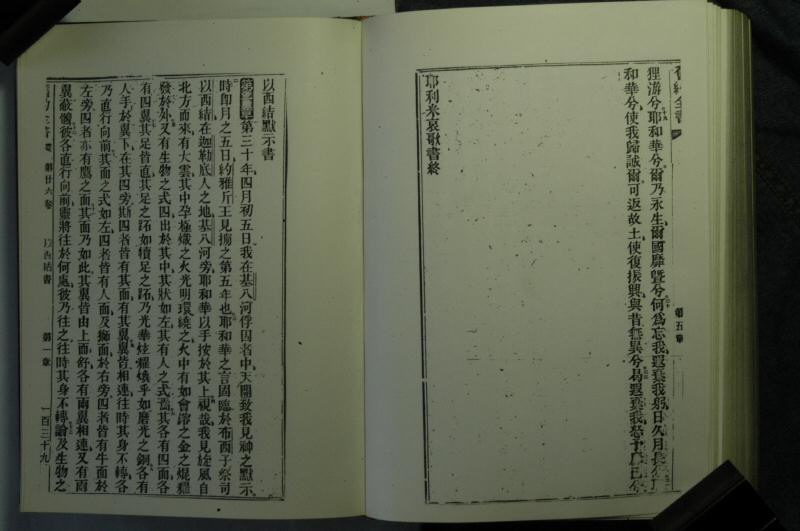 舊約全書
狸游兮耶和華兮爾乃永生爾國靡曁兮何爲忘我遐棄我躬日久月長兮
和華兮使我歸誠爾可返故土使復振興與昔無異兮曷遐棄我怒予爲已
耶利米哀歌書終
第五章
以西結默示書
第一章第三十年四月初五日我在基八河俘囚者中天開致我見神之默示
時卽月之五日約雅斤王見擄之第五年也耶和華之言固臨於布西子祭司
以西結在迦勒底人之地基八河旁耶和華以手按於其上視哉我見旋風自
北方而來有大雲其中孕極熾之火光明環繞之火中有如會鎔之金之焜耀
發於外又有生物之式四出於其中其狀如左其有人之式焉其各有四面各
有四翼其足皆直其足之跖如犢足之跖乃光華炫耀燒乎如磨光之銅各有
人手於翼下在其四旁斯四者皆有其面有其翼翼皆相連往時其身不轉各
乃直行向前其面之式如左四者皆有人面及獅面於右旁四者皆有牛面於
左旁四者亦有鷹之面其面乃如此其翼皆由上而舒各有兩翼相連又有兩
翼蔽體彼各直行向前靈將往於何處彼乃往之往時其身不轉論及生物之
第廿六卷
以西結書
第一章
一百三十九